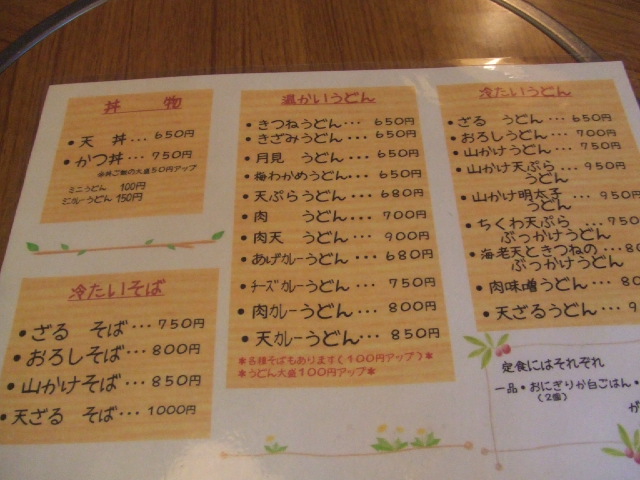 丼 物
・天 丼… 650円
・かつ丼… 750円
※丼ご飯の大盛50円アップ
ミニうどん 100円
ミニカレーうどん 150円
冷たいそば
・ざる そば… 750円
・おろしそば… 800円
・山かけそば… 850円
・天ざる そば… 1000円
温かいうどん
・きつねうどん… 650円
・きざみうどん… 650円
・月見 うどん… 650円
・梅わかめうどん… 650円
・天ぷらうどん… 680円
・肉 うどん… 700円
・肉天 うどん… 900円
・あげカレーうどん… 680円
・チーズカレーうどん… 750円
・肉カレーうどん… 800円
・天カレーうどん… 850円
*各種そばもあります(100円アップ)*
*うどん大盛100円アップ*
冷たいうどん
・ざる うどん… 650円
・おろしうどん… 700円
・山かけうどん… 750円
・山かけ天ぷら… 950円
うどん
・山かけ明太子… 950円
うどん
・ちくわ天ぷら …750
ぶっかけうどん
・海老天ときつねの…
ぶっかけうどん
・肉味噌うどん…
・天ざるうどん…
定食にはそれぞれ
一品・おにぎりか白ごはん・
(2個)
が